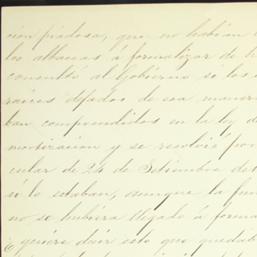 cion piadosa, que no habian
los albaceas á formalizar de
consulto al Gobierno si los
raices dejados de esa manera
ban comprendidos en la ley de
mortizacion y se resolvió por
cular de 24 de Setiembre de
si lo estaban, aunque la fun
no se hubiera llegado á forma
quiere decir esto que quedab